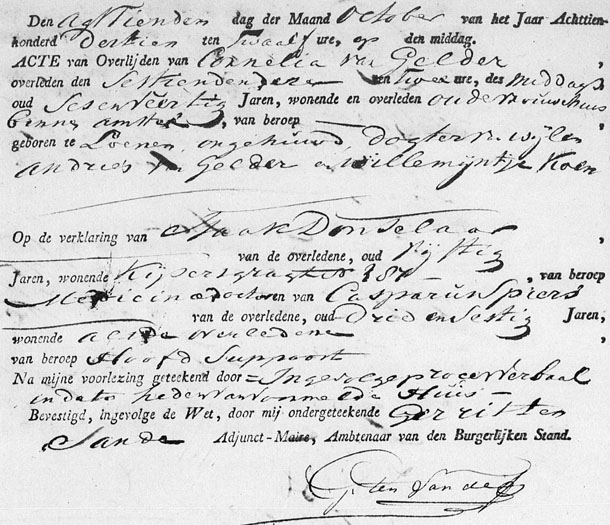 Den agttienden dag der Maand October van het Jaar Achttien-
honderd Dertien ten Twaalf ure, op den middag.
ACTE van Overlijden van Cornelia van Gelder,
overleden den Sestiendendeze ten Twee ure, des Middags
oud Sesenveertig Jaren, wonende en overleden oudevrouwehuis
binnen amstel, van beroep
geboren te Loenen, ongehuwd, Dogter v. wijlen
Andries van Gelder en Willemijntje Koen
Op de verklaring van Isaak Donselaar,
van de overledene, oud Vijftig
Jaren, wonende Keijsersgragt 187, van beroep
Medicine doctor en van Casparus Spiers
van de overledene, oud Drie en Sestig Jaren,
wonende als de overledene,
van beroep Hoofd Suppoort
Na mijne voorlezing geteekend door Ingevolge proces Verbaal
in dato heden van voormelde Huis
Bevestigd, ingevolge de Wet, door mij ondergeteekende Gerrit ten
Sande Adjunct-Maire, Ambtenaar van den Burgerlijken Stand.
G. ten Sande